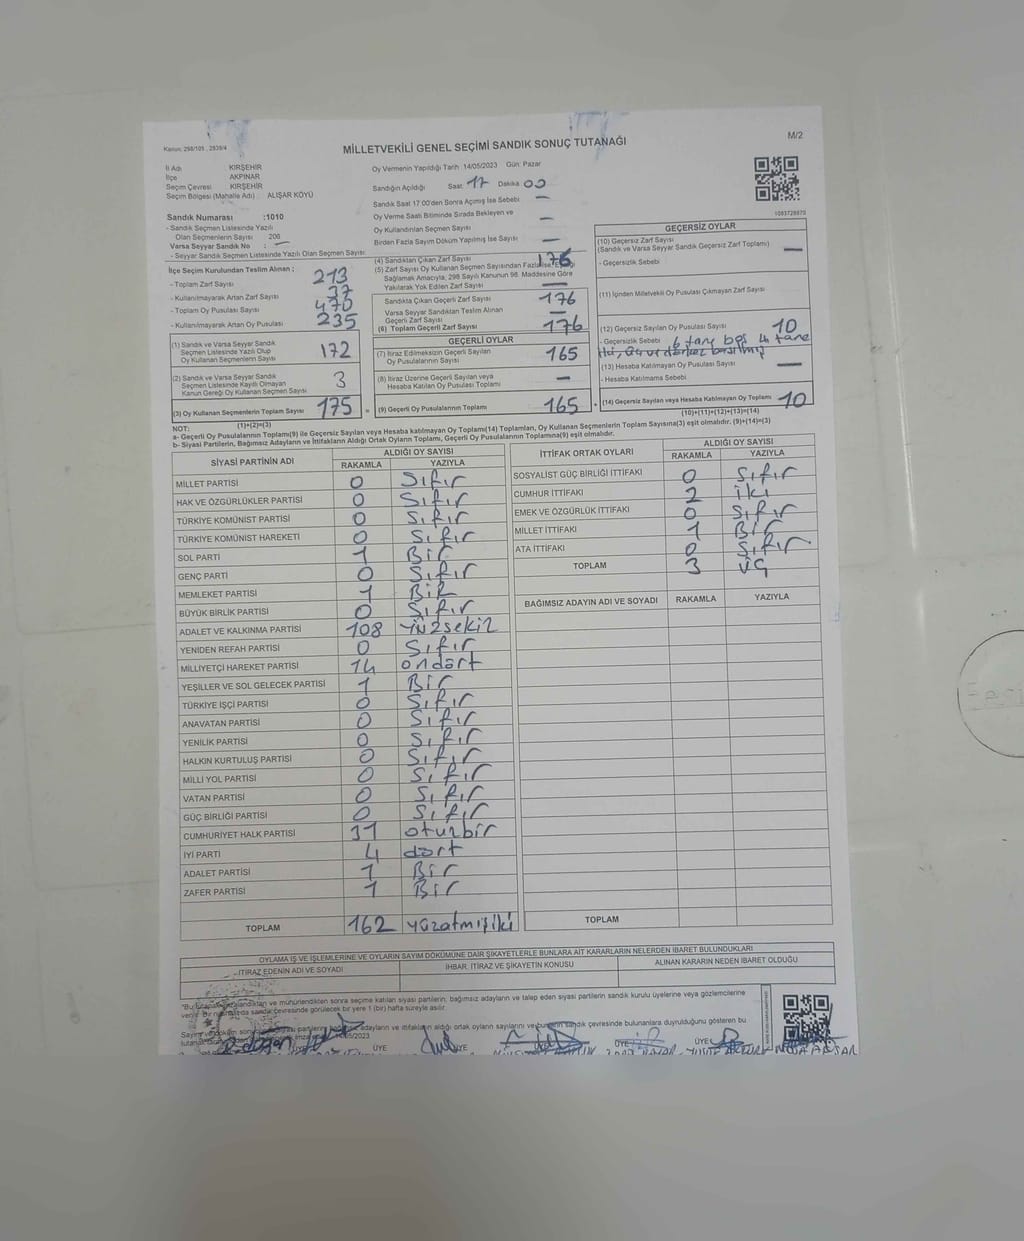 Kanun: 298/105 , 2839/4
MİLLETVEKİLİ GENEL SEÇİMİ SANDIK SONUÇ TUTANAĞI
M/2
İl Adı KIRŞEHİR
İlçe AKPINAR
Seçim Çevresi KIRŞEHİR
Seçim Bölgesi (Mahalle Adı) : ALIŞAR KÖYÜ
Sandık Numarası :1010
- Sandık Seçmen Listesinde Yazılı
Olan Seçmenlerin Sayısı 206
Varsa Seyyar Sandık No : —
- Seyyar Sandık Seçmen Listesinde Yazılı Olan Seçmen Sayısı
Oy Vermenin Yapıldığı Tarih :14/05/2023 Gün: Pazar
Sandığın Açıldığı Saat 17 Dakika 00
Sandık Saat 17:00'den Sonra Açılmış İse Sebebi —
Oy Verme Saati Bitiminde Sırada Bekleyen ve
Oy Kullandırılan Seçmen Sayısı —
Birden Fazla Sayım Döküm Yapılmış İse Sayısı —
1083728970
İlçe Seçim Kurulundan Teslim Alınan ;
- Toplam Zarf Sayısı 213
- Kullanılmayarak Artan Zarf Sayısı 37
- Toplam Oy Pusulası Sayısı 470
- Kullanılmayarak Artan Oy Pusulası 235
(1) Sandık ve Varsa Seyyar Sandık
Seçmen Listesinde Yazılı Olup
Oy Kullanan Seçmenlerin Sayısı 172
(2) Sandık ve Varsa Seyyar Sandık
Seçmen Listesinde Kayıtlı Olmayan
Kanun Gereği Oy Kullanan Seçmen Sayısı 3
(3) Oy Kullanan Seçmenlerin Toplam Sayısı 175
(1)+(2)=(3)
(4) Sandıktan Çıkan Zarf Sayısı 176
(5) Zarf Sayısı Oy Kullanan Seçmen Sayısından Fazla İse,
Sağlamak Amacıyla; 298 Sayılı Kanunun 98. Maddesine Göre
Yakılarak Yok Edilen Zarf Sayısı —
Sandıkta Çıkan Geçerli Zarf Sayısı 176
Varsa Seyyar Sandıktan Teslim Alınan
Geçerli Zarf Sayısı —
(6) Toplam Geçerli Zarf Sayısı 176
GEÇERLİ OYLAR
(7) İtiraz Edilmeksizin Geçerli Sayılan
Oy Pusulalarının Sayısı 165
(8) İtiraz Üzerine Geçerli Sayılan veya
Hesaba Katılan Oy Pusulası Toplamı —
= (9) Geçerli Oy Pusulalarının Toplamı 165
GEÇERSİZ OYLAR
(10) Geçersiz Zarf Sayısı
(Sandık ve Varsa Seyyar Sandık Geçersiz Zarf Toplamı) —
- Geçersizlik Sebebi
(11) İçinden Milletvekili Oy Pusulası Çıkmayan Zarf Sayısı
(12) Geçersiz Sayılan Oy Pusulası Sayısı 10
- Geçersizlik Sebebi 6 tane boş 4 tane
(13) Hesaba Katılmayan Oy Pusulası Sayısı —
- Hesaba Katılmama Sebebi
(14) Geçersiz Sayılan veya Hesaba Katılmayan Oy Toplamı 10
(10)+(11)+(12)+(13)=(14)
NOT:
a- Geçerli Oy Pusulalarının Toplamı(9) ile Geçersiz Sayılan veya Hesaba katılmayan Oy Toplamı(14) Toplamları, Oy Kullanan Seçmenlerin Toplam Sayısına(3) eşit olmalıdır. (9)+(14)=(3)
b- Siyasi Partilerin, Bağımsız Adayların ve İttifakların Aldığı Ortak Oyların Toplamı, Geçerli Oy Pusulalarının Toplamına(9) eşit olmalıdır.
SİYASİ PARTİNİN ADI ALDIĞI OY SAYISI
RAKAMLA YAZIYLA
MİLLET PARTİSİ 0 Sıfır
HAK VE ÖZGÜRLÜKLER PARTİSİ 0 Sıfır
TÜRKİYE KOMÜNİST PARTİSİ 0 Sıfır
TÜRKİYE KOMÜNİST HAREKETİ 0 Sıfır
SOL PARTİ 1 Bir
GENÇ PARTİ 0 Sıfır
MEMLEKET PARTİSİ 1 Bir
BÜYÜK BİRLİK PARTİSİ 0 Sıfır
ADALET VE KALKINMA PARTİSİ 108 yüzsekiz
YENİDEN REFAH PARTİSİ 0 Sıfır
MİLLİYETÇİ HAREKET PARTİSİ 14 ondört
YEŞİLLER VE SOL GELECEK PARTİSİ 1 Bir
TÜRKİYE İŞÇİ PARTİSİ 0 Sıfır
ANAVATAN PARTİSİ 0 Sıfır
YENİLİK PARTİSİ 0 Sıfır
HALKIN KURTULUŞ PARTİSİ 0 Sıfır
MİLLİ YOL PARTİSİ 0 Sıfır
VATAN PARTİSİ 0 Sıfır
GÜÇ BİRLİĞİ PARTİSİ 0 Sıfır
CUMHURİYET HALK PARTİSİ 31 oturbir
İYİ PARTİ 4 dört
ADALET PARTİSİ 1 Bir
ZAFER PARTİSİ 1 Bir
TOPLAM 162 yüzatmışiki
İTTİFAK ORTAK OYLARI ALDIĞI OY SAYISI
RAKAMLA YAZIYLA
SOSYALİST GÜÇ BİRLİĞİ İTTİFAKI 0 Sıfır
CUMHUR İTTİFAKI 2 iki
EMEK VE ÖZGÜRLÜK İTTİFAKI 0 Sıfır
MİLLET İTTİFAKI 1 Bir
ATA İTTİFAKI 0 Sıfır
TOPLAM 3 üç
BAĞIMSIZ ADAYIN ADI VE SOYADI RAKAMLA YAZIYLA
TOPLAM
OYLAMA İŞ VE İŞLEMLERİNE VE OYLARIN SAYIM DÖKÜMÜNE DAİR ŞİKAYETLERLE BUNLARA AİT KARARLARIN NELERDEN İBARET BULUNDUKLARI
İTİRAZ EDENİN ADI VE SOYADI İHBAR, İTİRAZ VE ŞİKAYETİN KONUSU ALINAN KARARIN NEDEN İBARET OLDUĞU
mühürlendikten sonra seçime katılan siyasi partilerin, bağımsız adayların ve talep eden siyasi partilerin sandık kurulu üyelerine veya gözlemcilerine
sandık çevresinde görülecek bir yere 1 (bir) hafta süreyle asılır.
adayların ve ittifakların aldığı ortak oyların sayılarını ve sandık çevresinde bulunanlara duyurulduğunu gösteren bu
ÜYE ÜYE ÜYE ÜYE